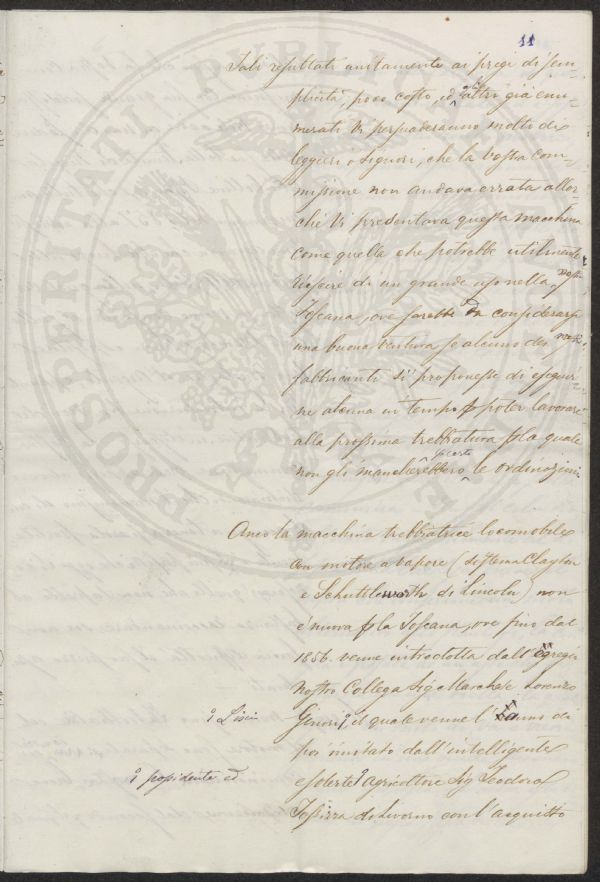 11
Tali resultati unitamente ai pregi di sem-
plicità, poco costo, ed altri già enu-
merati Vi persuaderanno molto di
leggieri o Signori, che la Vostra Com-
missione non andava errata allor-
ché Vi presentava questa macchina
come quella che potrebbe utilmente
riescire di un grande uso nella nostra
Toscana, ove sarebbe da considerarsi
una buona ventura se alcuno dei nostri
fabbricanti si proponesse di eseguir-
ne alcuna in tempo p poter lavorare
alla prossima trebbiatura p la quale
non gli mancherebbero di certo le ordinazioni.
Anco la macchina trebbiatrice locomobile
con motore a vapore (sistema Clayton
e Schuttleworth di Lincoln) non
é nuova p la Toscana, ove fino dal
1856. venne introdotta dall'egregio
nostro Collega Sig. Marchese Lorenzo
Ginori Lisci, il quale venne l'anno di
poi imitato dall'intelligente
possidente ed
e solerte agricoltore Sig. Teodoro
Tossizza di Livorno con l'acquisto